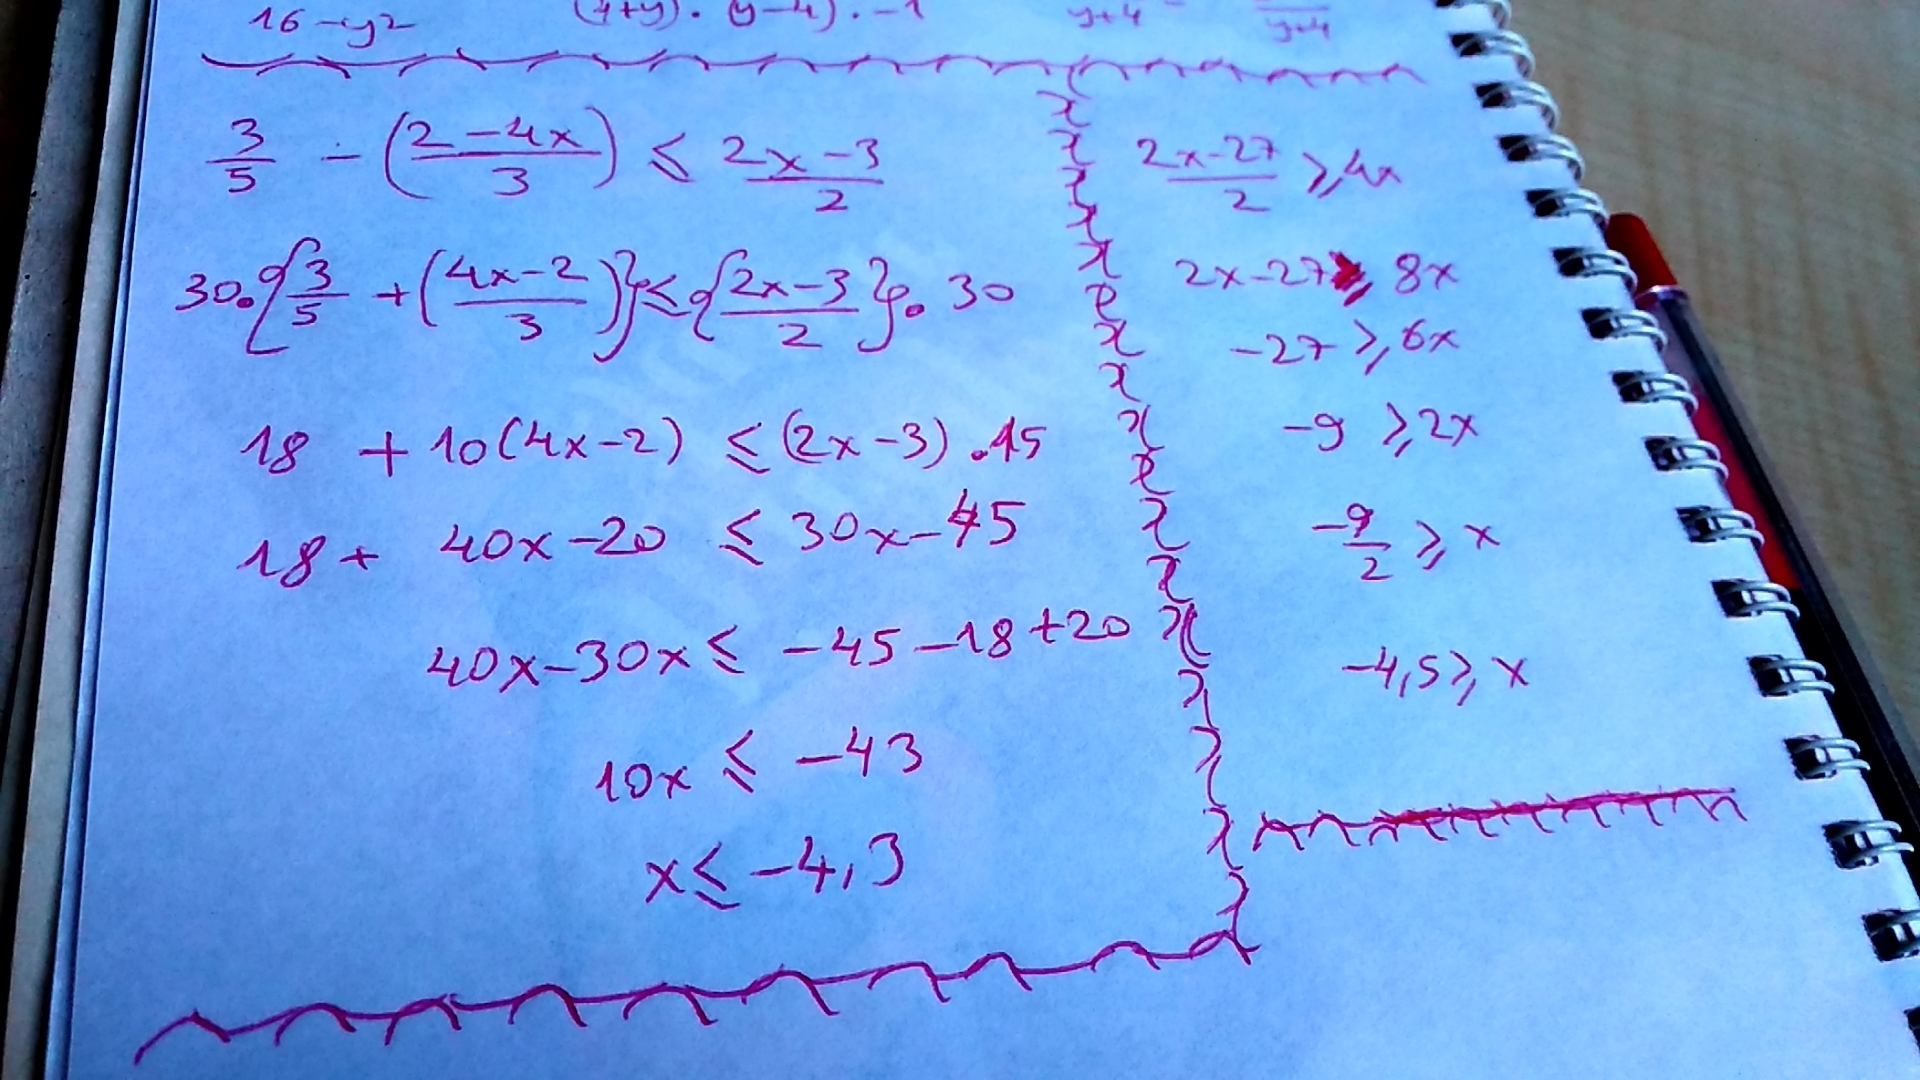 16-y²
(4+y).(y-4).-1
y+4
y+4
3/5 - ((2-4x)/3) ≤ (2x-3)/2
30.{3/5 + ((4x-2)/3)} ≤ {(2x-3)/2}.30
18 + 10(4x-2) ≤ (2x-3).15
18+ 40x-20 ≤ 30x-45
40x-30x ≤ -45-18+20
10x ≤ -43
x ≤ -4,3
(2x-27)/2 ≥ 4x
2x-27 ≥ 8x
-27 ≥ 6x
-9 ≥ 2x
-9/2 ≥ x
-4,5 ≥ x